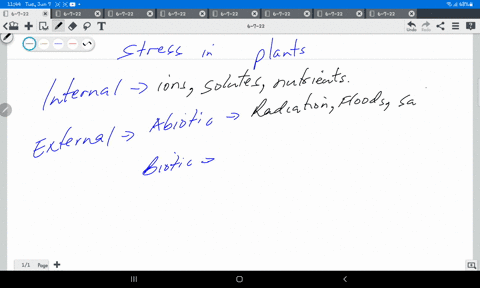 12:44 Tue, Jun 7
68%
6-7-22 6-7-22 6-7-22 6-7-22 6-7-22 6-7-22 6-7-22 6-7-22
6-7-22
Undo Redo
Stress in plants
Internal → ions, solutes, nutrients.
External → Abiotic → Radiation, Floods, sa
Biotic →
1/1 Page